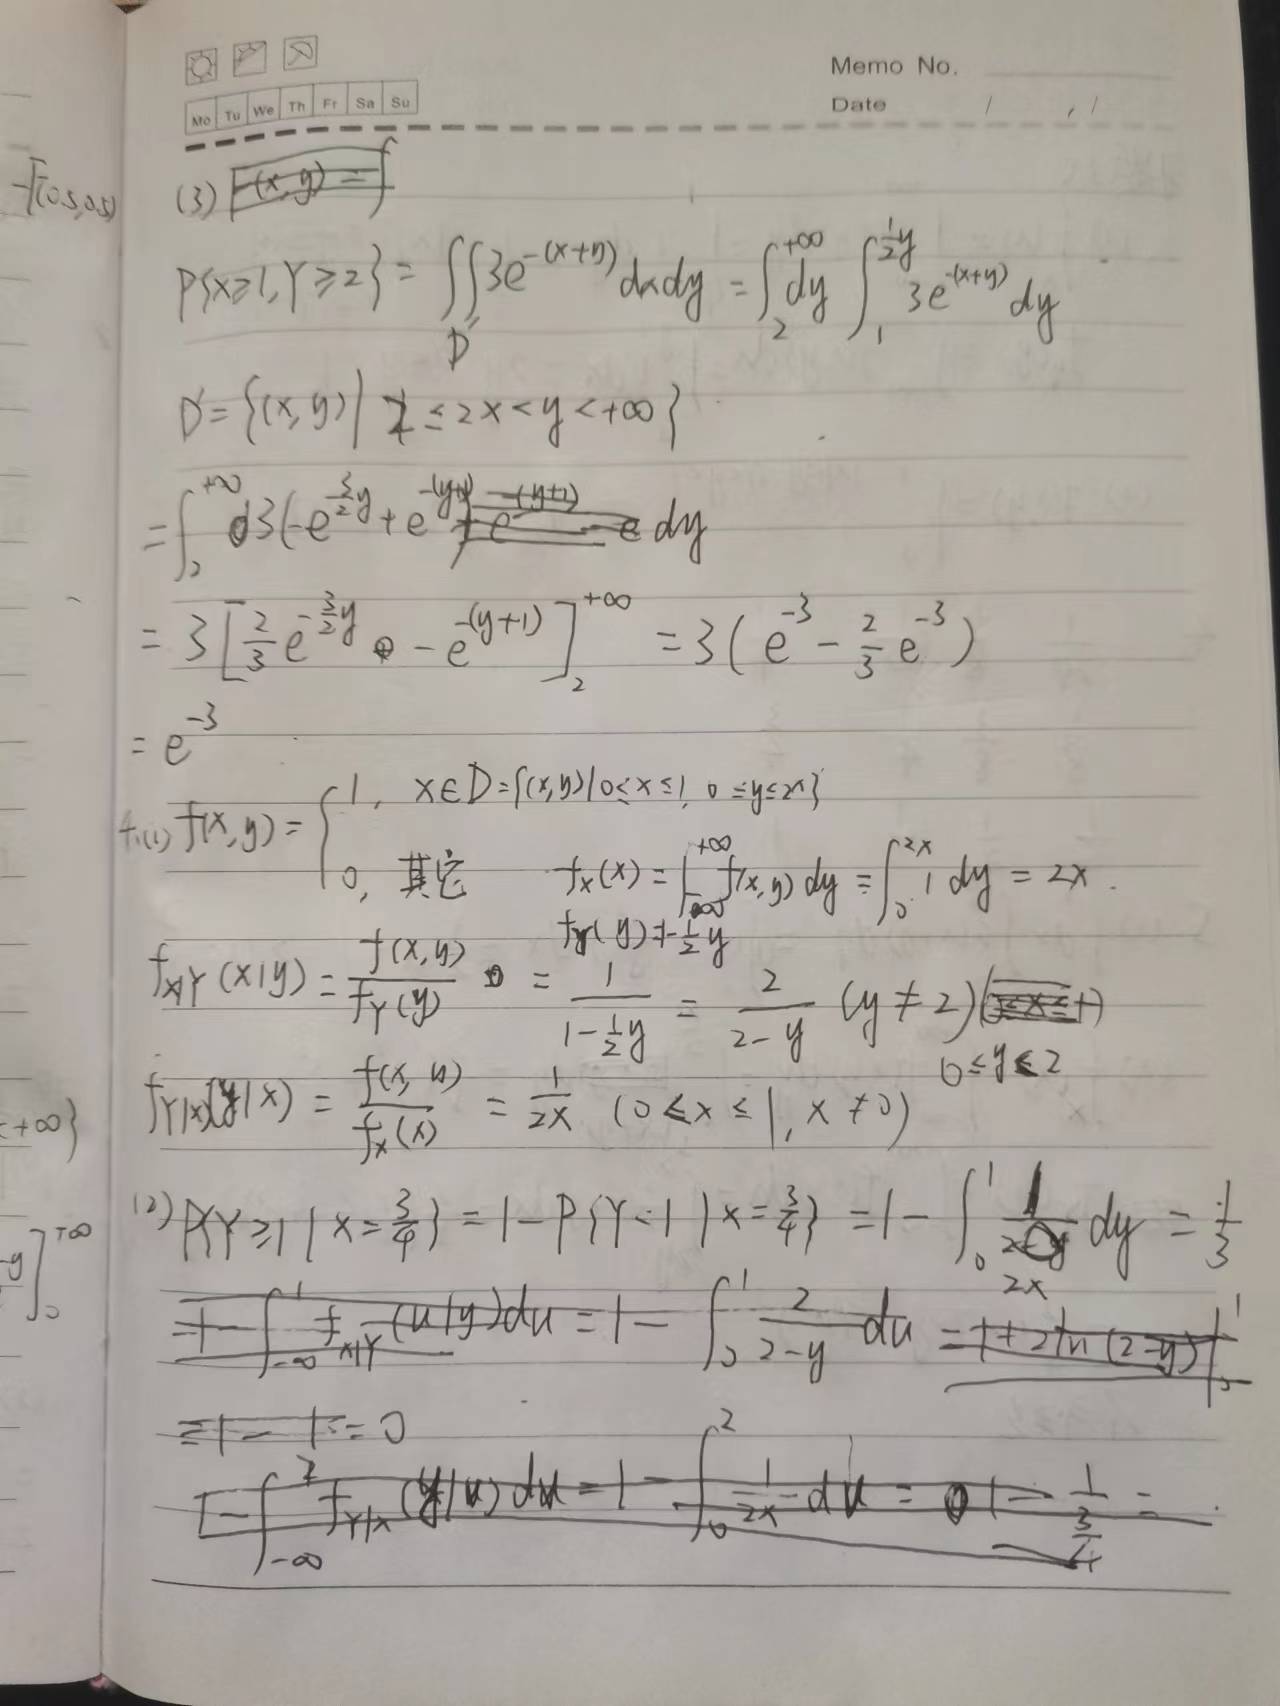 Memo No.
Date / , /
Mo Tu We Th Fr Sa Su
(3) F(x,y) = ∫
P{X≥1, Y≥2} = ∬_D' 3e^{-(x+y)} dxdy = ∫_2^{+∞} dy ∫_1^{½y} 3e^{-(x+y)} dy
D' = {(x,y) | 2 ≤ 2x < y < +∞}
= ∫_2^{+∞} 3(-e^{-3/2 y} + e^{-(y+1)}) dy
= 3[2/3 e^{-3/2 y} - e^{-(y+1)}]_2^{+∞} = 3(e^{-3} - 2/3 e^{-3})
= e^{-3}
(1) f(x,y) = { 1, x∈D={(x,y)|0≤x≤1, 0≤y≤2x}
0, 其它 f_X(x) = ∫_{-∞}^{+∞} f(x,y) dy = ∫_0^{2x} 1 dy = 2x.
f_Y(y) = 1-½y
f_{X|Y}(x|y) = f(x,y)/f_Y(y) = 1/(1-½y) = 2/(2-y) (y≠2)
0≤y≤2
f_{Y|X}(y|x) = f(x,y)/f_X(x) = 1/2x (0≤x≤1, x≠0)
(2) P{Y≥1 | X=3/4} = 1-P{Y<1 | X=3/4} = 1-∫_0^1 1/2x dy = 1/3
= 1-∫_{-∞}^1 f_{X|Y}(u|y)du = 1-∫_0^1 2/(2-y) du = 1+2ln(2-y)|_0^1
= 1-1 = 0
1-∫_{-∞}^2 f_{Y|X}(y|u)du = 1-∫_0^2 1/2x du = 1-
+∞}